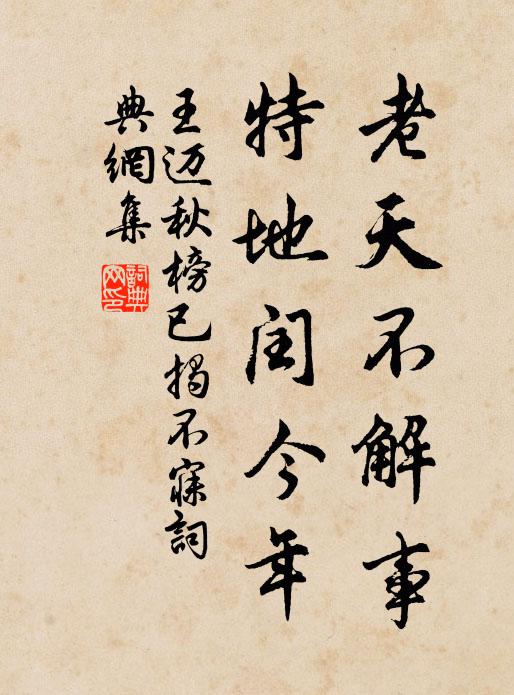 老天不解事
特地闰今年
王迈秋榜已揭不寐詞
典網集
詞典网印